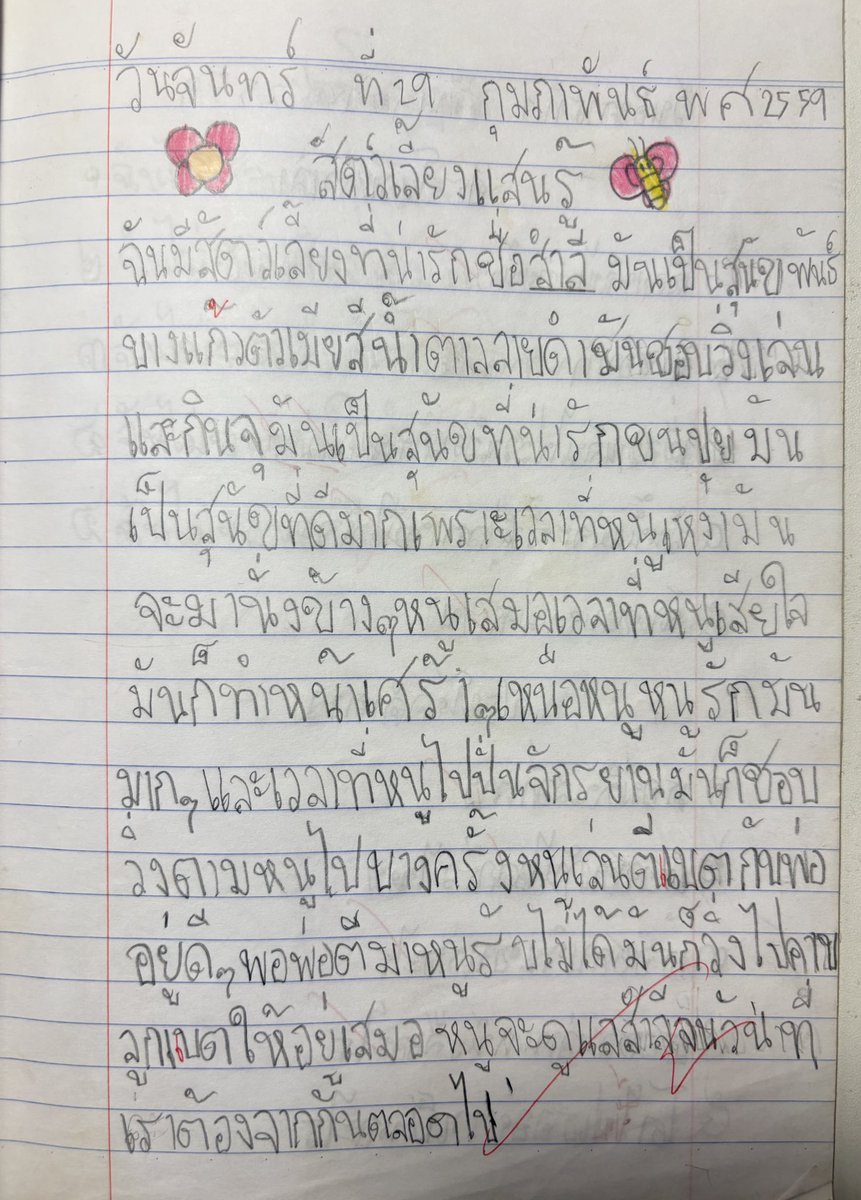 วันจันทร์ ที่ 29 กุมภาพันธ์ พ ศ 2559
สัตว์เลี้ยงแสนรู้
ฉันมีสัตว์เลี้ยงที่น่ารักชื่อสำลี มันเป็นสุนัขพันธ์
บางแก้วตัวเมียสีน้ำตาลลายดำมันชอบวิ่งเล่น
และกินจุมันเป็นสุนัขที่น่ารักขนปุย มัน
เป็นสุนัขที่ดีมากเพราะเวลาที่หนูเหงามัน
จะมานั่งข้างๆหนูเสมอเวลาที่หนูเสียใจ
มันก็ทำหน้าเศร้าๆเหมือหนูหนูรักมัน
มากๆและเวลาที่หนูไปปั่นจักรยานมันก็ชอบ
วิ่งตามหนูไปบางครั้งหนูเล่นตีแบตกับพ่อ
อยู่ดีๆพอพ่อตีมาหนูรับไม่ได้มันก็วิ่งไปคาบ
ลูกแบตให้อยู่เสมอ หนูจะดูแลสำลีจนวันที่
เราต้องจากกันตลอดไป